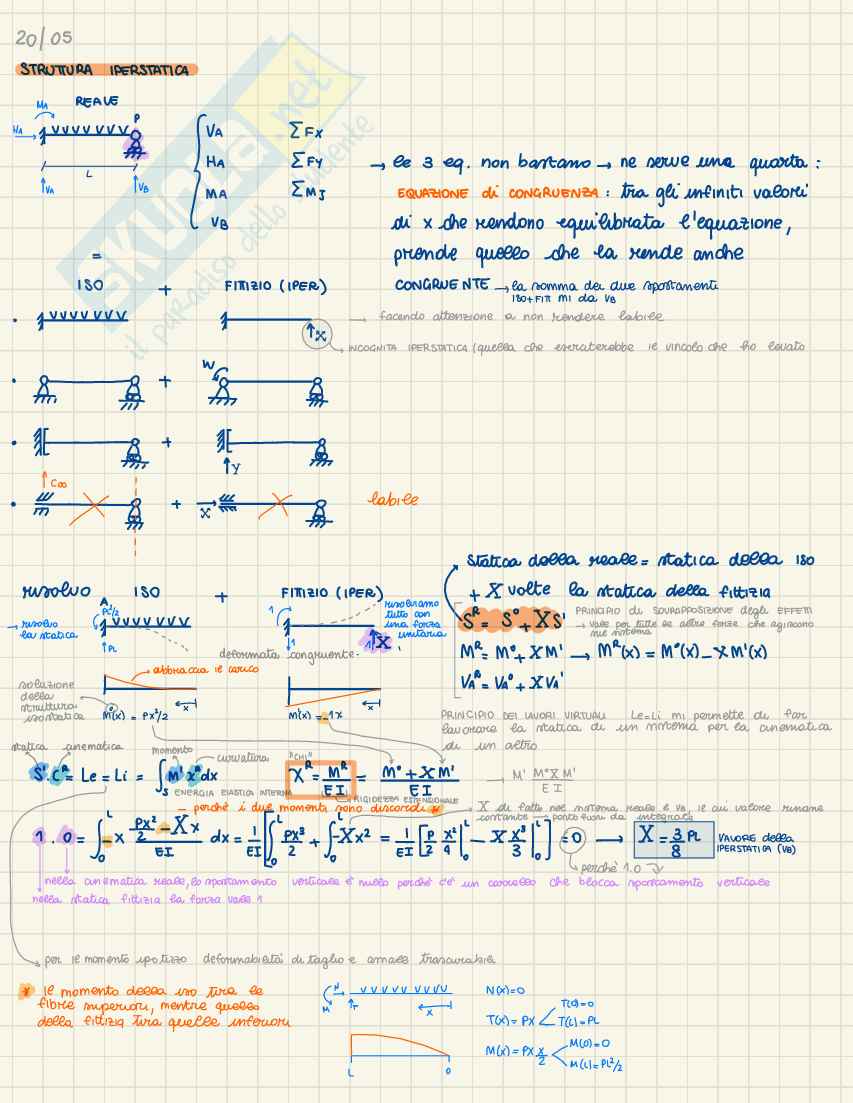 20/05
STRUTTURA IPERSTATICA
REALE
MA
P
HA
L
VA
VB
VA
HA
MA
VB
ΣFx
ΣFy
ΣMJ
→ le 3 eq. non bastano → ne serve una quarta :
EQUAZIONE di CONGRUENZA : tra gli infiniti valori
di x che rendono equilibrata l'equazione,
prende quello che la rende anche
CONGRUENTE → la somma dei due spostamenti
ISO+FITT mi da VB
SKUOLA.net
il paradiso dello studente
=
ISO + FITIZIO (IPER)
X
→ facendo attenzione a non rendere labile
→ INCOGNITA IPERSTATICA (quella che eserciterebbe il vincolo che ho levato
+
W
+
Y
C∞
+
X
labile
risolvo ISO + FITIZIO (IPER)
→ risolvo
la statica
A
PL²/2
PL
1
1
X
1
risolviamo
tutto con
una forza
unitaria
deformata congruente
Statica della reale = statica della ISO
+ X volte la statica della fittizia
S^R = S° + XS'
PRINCIPIO DI SOVRAPPOSIZIONE degli EFFETTI
→ Vale per tutte le altre forze che agiscono
nel sistema
M^R = M° + XM' → M^R(x) = M°(x) – XM'(x)
VA^R = VA° + XVA'
abbraccia il carico
x
x
soluzione
della
struttura
isostatica
M°(x) = Px²/2
M'(x) = -1x
PRINCIPIO DEI LAVORI VIRTUALI Le=Li mi permette di far
lavorare la statica di un sistema per la cinematica
di un altro
statica cinematica
momento
curvatura
"CHI"
S'. C^R = Le = Li = ∫s M' χ^R dx
χ^R = M^R/EI = M° + XM'/EI → M' M°XM'/EI
ENERGIA ELASTICA INTERNA
RIGIDEZZA ESTENSIONALE
– perchè i due momenti sono discordi *
X di fatto nel sistema reale è VB, il cui valore rimane
costante → porto fuori da integrale
1 . 0 = ∫₀^L -x (Px²/2 – Xx)/EI dx = 1/EI [∫₀^L Px³/2 + ∫₀^L -Xx² = 1/EI [P/2 x²/4 |₀^L – X x³/3 |₀^L ] = 0 → X = 3/8 PL
VALORE della
IPERSTATICA (VB)
perchè 1.0
nella cinematica reale, lo spostamento verticale è nullo perchè c'è un carrello che blocca spostamento verticale
nella statica fittizia la forza vale 1
per il momento ipotizzo deformabilità di taglio e assiale trascurabili
* il momento della iso tira le
fibre superiori, mentre quello
della fittizia tira quelle inferiori
N
M
T
x
N(x)=0
T(x) = Px
T(0)=0
T(L)=PL
M(x) = Px x/2
M(0)=0
M(L)=PL²/2
L
0